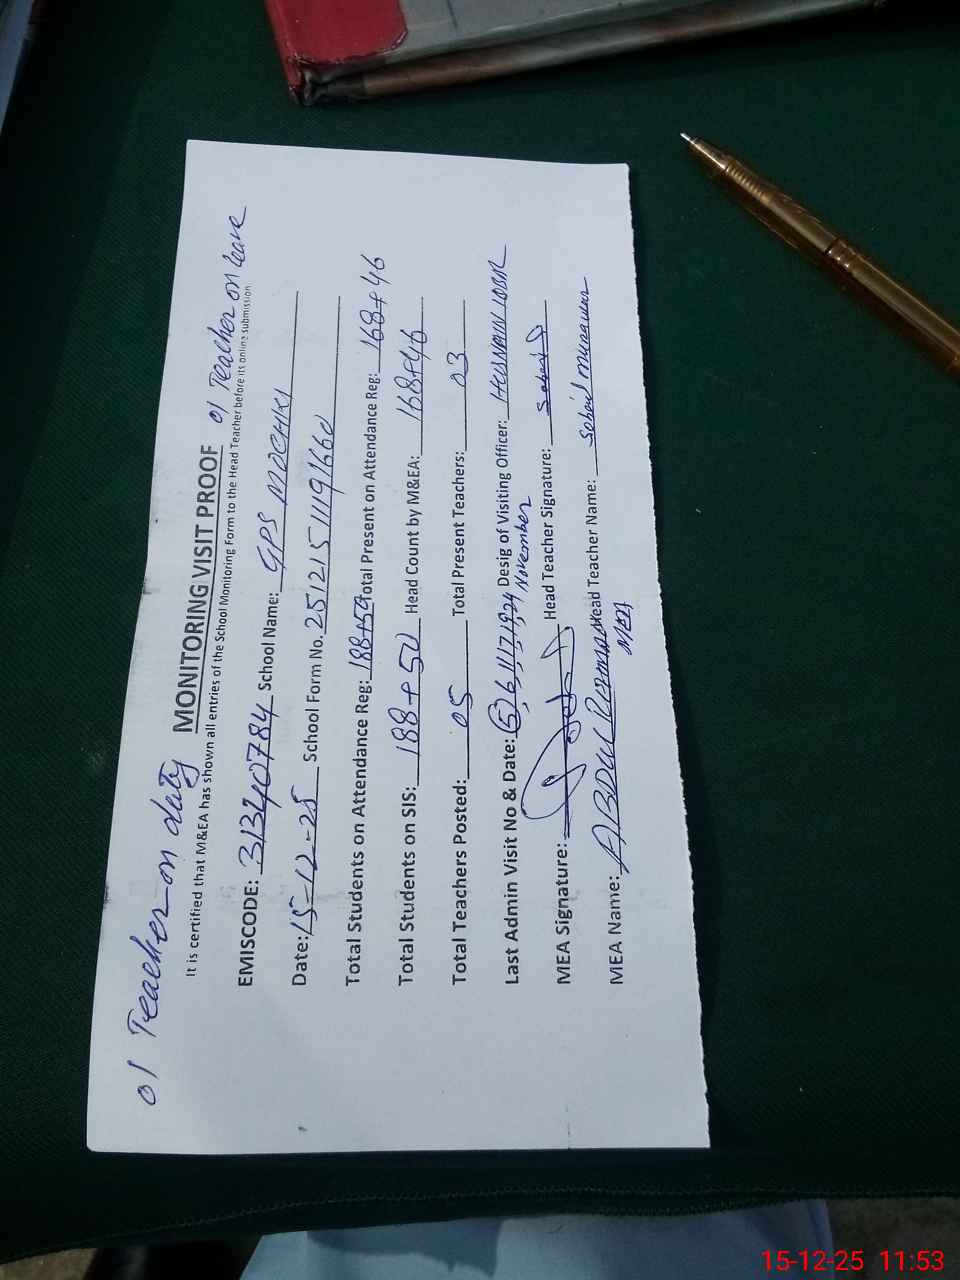 01 Teacher on duty
MONITORING VISIT PROOF 01 Teacher on leave
It is certified that M&EA has shown all entries of the School Monitoring Form to the Head Teacher before its online submission
EMISCODE: 31340784 School Name: GPS MOCHIKI
Date: 15-12-25 School Form No. 251215111191660
Total Students on Attendance Reg: 188+50 Total Present on Attendance Reg: 168+46
Total Students on SIS: 188+50 Head Count by M&EA: 168+46
Total Teachers Posted: 05 Total Present Teachers: 03
Last Admin Visit No & Date: (5) 6,11,17,19,24 Desig of Visiting Officer:
November
MEA Signature: Head Teacher Signature: Soheil
MEA Name: ABDUL REHMAN Head Teacher Name: Soheil munawar
MEA
15-12-25 11:53